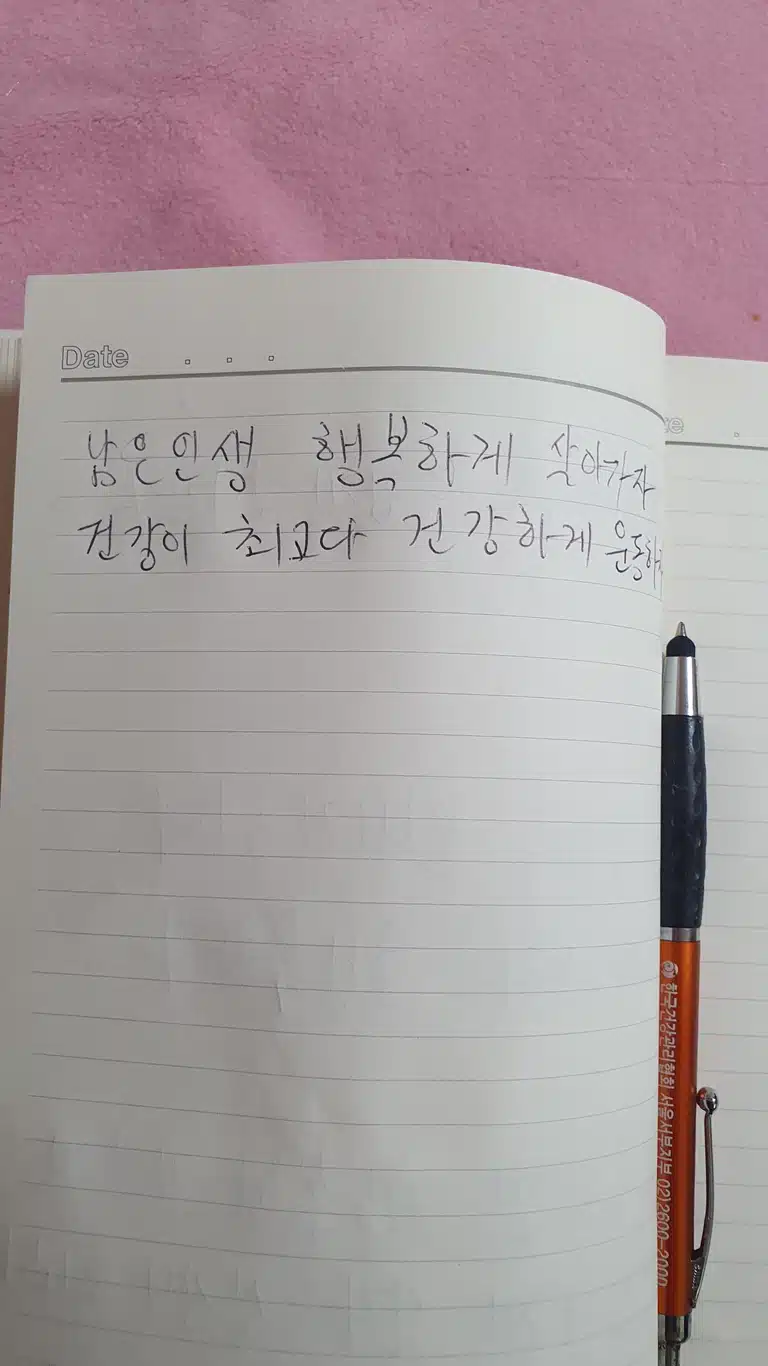 Date . . .
남은인생 행복하게 살아가자
건강이 최고다 건강하게 운동하자
한국건강관리협회 서울서부지부 02)2600-2000